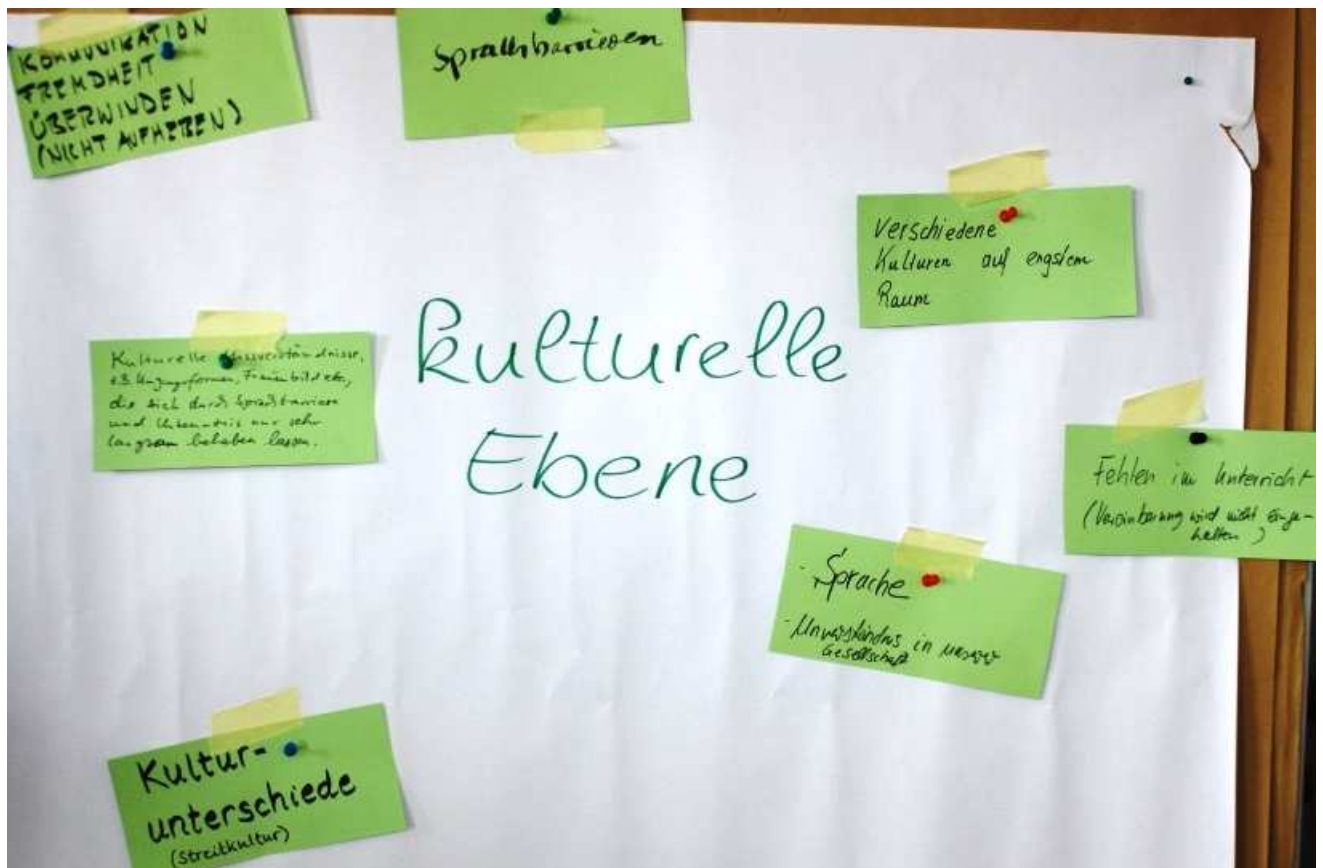 KOMMUNIKATION
FREMDHEIT
ÜBERWINDEN
(NICHT AUFHEBEN)
Sprachbarrieren
Verschiedene
Kulturen auf engstem
Raum
kulturelle
Ebene
Kulturelle Missverständnisse,
z.B. Umgangsformen, Frauenbild etc,
die sich durch Sprachbarriere
und Unkenntnis nur sehr
langsam beheben lassen.
Fehlen im Unterricht
(Vereinbarung wird nicht einge-
halten)
- Sprache
- Unverständnis in unserer
Gesellschaft
Kultur-
unterschiede
(Streitkultur)